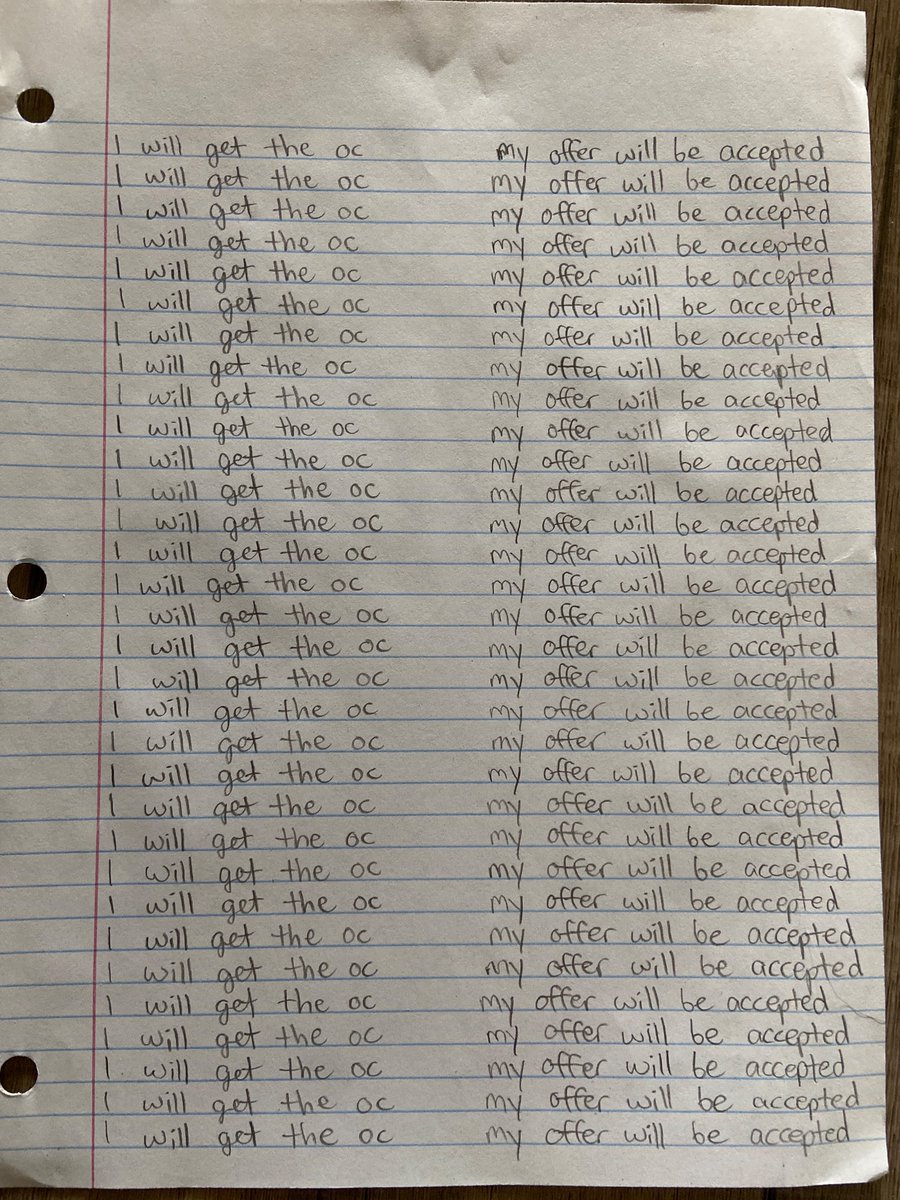 I will get the oc my offer will be accepted
I will get the oc my offer will be accepted
I will get the oc my offer will be accepted
I will get the oc my offer will be accepted
I will get the oc my offer will be accepted
I will get the oc my offer will be accepted
I will get the oc my offer will be accepted
I will get the oc my offer will be accepted
I will get the oc my offer will be accepted
I will get the oc my offer will be accepted
I will get the oc my offer will be accepted
I will get the oc my offer will be accepted
I will get the oc my offer will be accepted
I will get the oc my offer will be accepted
I will get the oc my offer will be accepted
I will get the oc my offer will be accepted
I will get the oc my offer will be accepted
I will get the oc my offer will be accepted
I will get the oc my offer will be accepted
I will get the oc my offer will be accepted
I will get the oc my offer will be accepted
I will get the oc my offer will be accepted
I will get the oc my offer will be accepted
I will get the oc my offer will be accepted
I will get the oc my offer will be accepted
I will get the oc my offer will be accepted
I will get the oc my offer will be accepted
I will get the oc my offer will be accepted
I will get the oc my offer will be accepted
I will get the oc my offer will be accepted
I will get the oc my offer will be accepted
I will get the oc my offer will be accepted